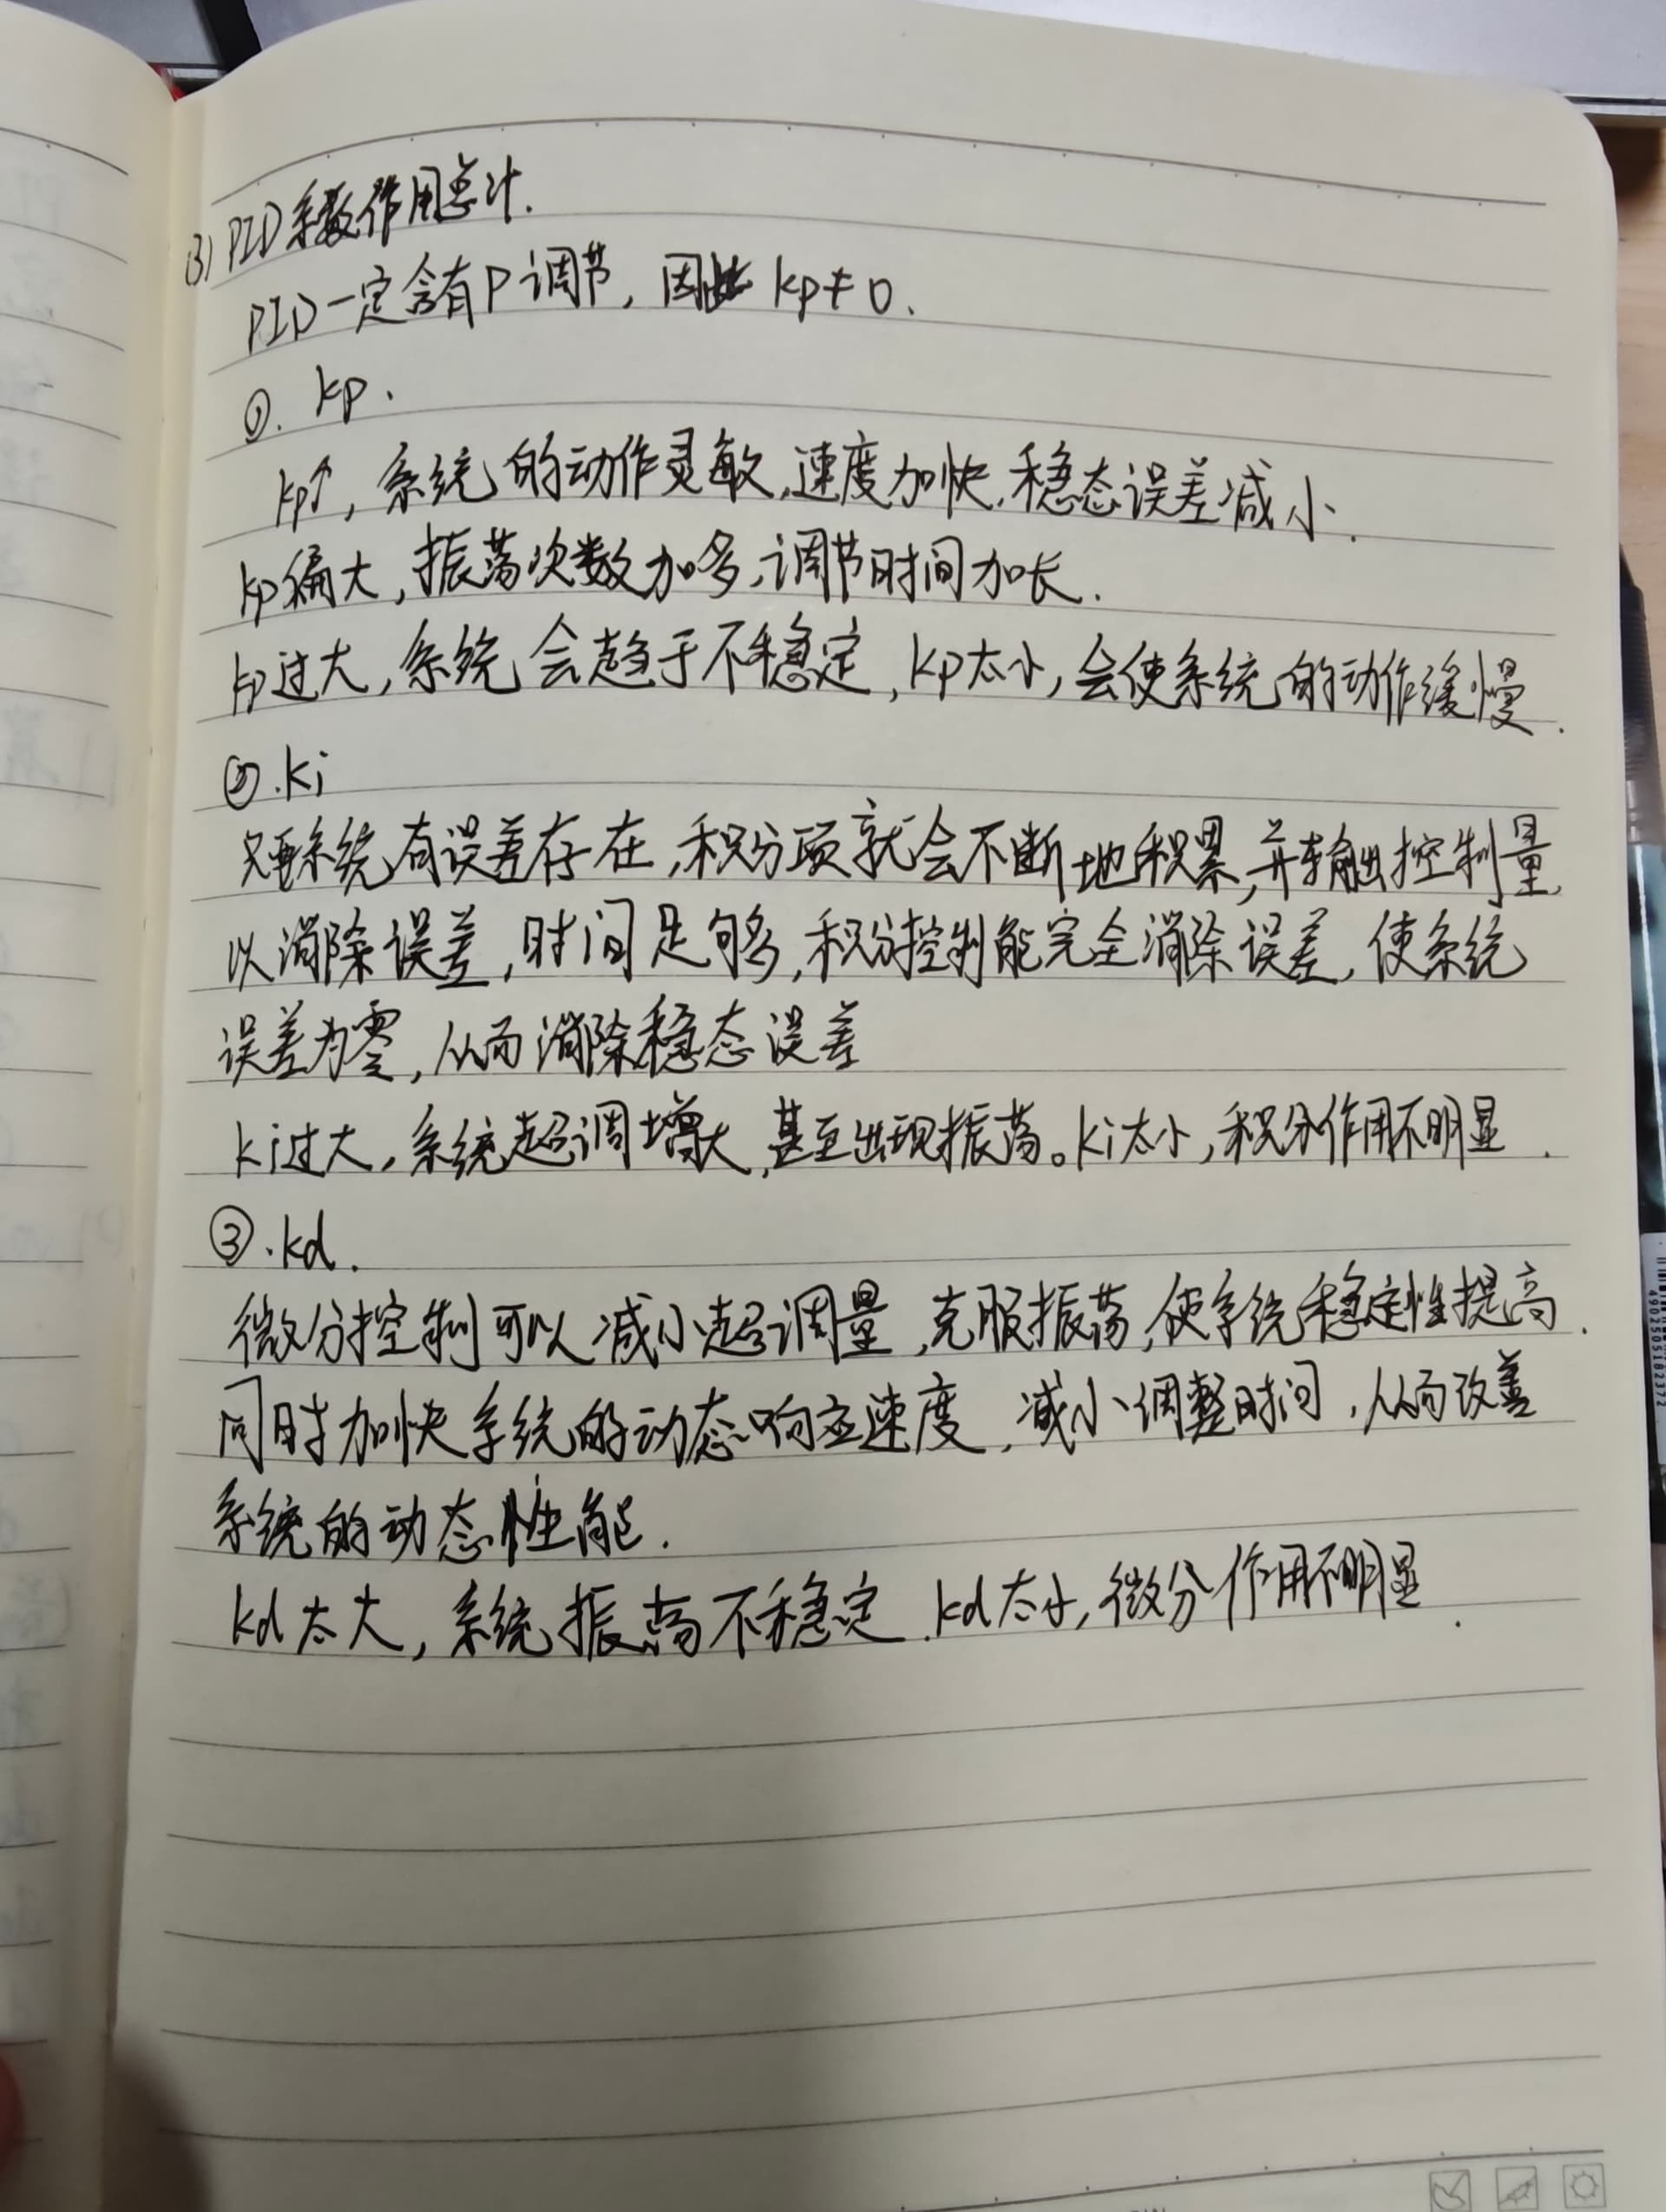 (3) PID系数作用总计.
PID一定含有P调节, 因此 kp≠0.
①. kp.
kp↑, 系统的动作灵敏,速度加快,稳态误差减小.
kp偏大, 振荡次数加多,调节时间加长.
kp过大, 系统会趋于不稳定, kp太小, 会使系统的动作缓慢.
②.ki
只要系统有误差存在,积分项就会不断地积累,并输出控制量,
以消除误差,时间足够,积分控制能完全消除误差, 使系统
误差为零, 从而消除稳态误差
ki过大, 系统超调增大,甚至出现振荡。ki太小, 积分作用不明显.
③.kd.
微分控制可以减小超调量,克服振荡,使系统稳定性提高.
同时加快系统的动态响应速度, 减小调整时间, 从而改善
系统的动态性能.
kd太大, 系统振荡不稳定.kd太小, 微分作用不明显.
4902505182372